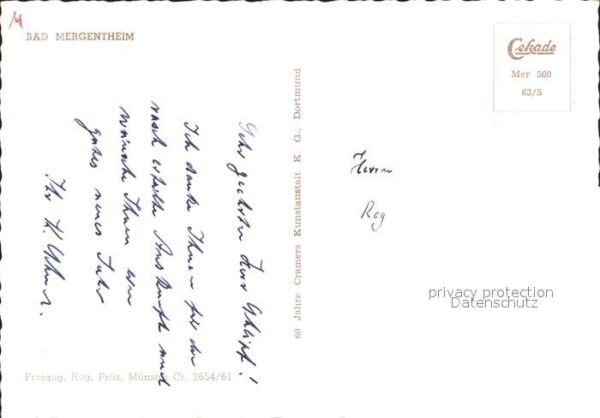 M
BAD MERGENTHEIM
Cekade
Mer 560
63/5
Sehr geehrter Herr
Ich danke Ihnen für die
rasch erteilte Auskunft und
wünsche Ihnen ein
gutes neues Jahr
Ihr
60 Jahre Cramers Kunstanstalt K. G., Dortmund
Herrn
Reg
privacy protection
Datenschutz
Freigeg. Reg. Präs. Münster Cr. 2654/61